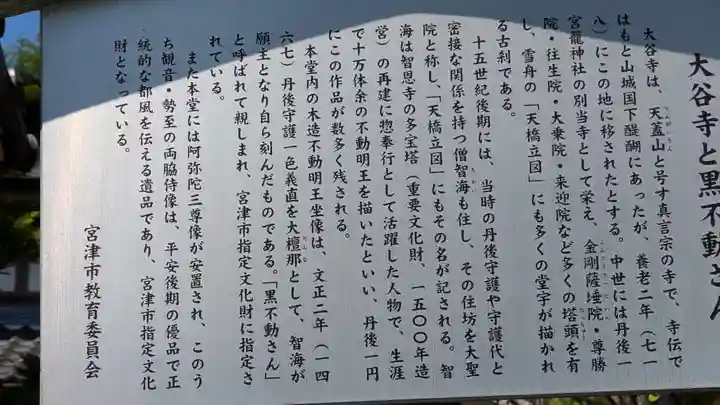 大谷寺と黒不動さん
大谷寺は、天蓋山と号す真言宗の寺で、寺伝で
はもと山城国下醍醐にあったが、養老二年（七一
八）にこの地に移されたとする。中世には丹後一
宮籠神社の別当寺として栄え、金剛薩埵院・尊勝
院・往生院・大乗院・来迎院など多くの塔頭を有
し、雪舟の「天橋立図」にも多くの堂宇が描かれ
る古刹である。
十五世紀後期には、当時の丹後守護や守護代と
密接な関係を持つ僧智海も住し、その住坊を大聖
院と称し、「天橋立図」にもその名が記される。智
海は智恩寺の多宝塔（重要文化財、一五〇〇年造
営）の再建に惣奉行として活躍した人物で、生涯
で十万体余の不動明王を描いたといい、丹後一円
にこの作品が数多く残される。
本堂内の木造不動明王坐像は、文正二年（一四
六七）丹後守護一色義直を大檀那として、智海が
願主となり自ら刻んだものである。「黒不動さん」
と呼ばれて親しまれ、宮津市指定文化財に指定さ
れている。
また本堂には阿弥陀三尊像が安置され、このう
ち観音・勢至の両脇侍像は、平安後期の優品で正
統的な都風を伝える遺品であり、宮津市指定文化
財となっている。
宮津市教育委員会